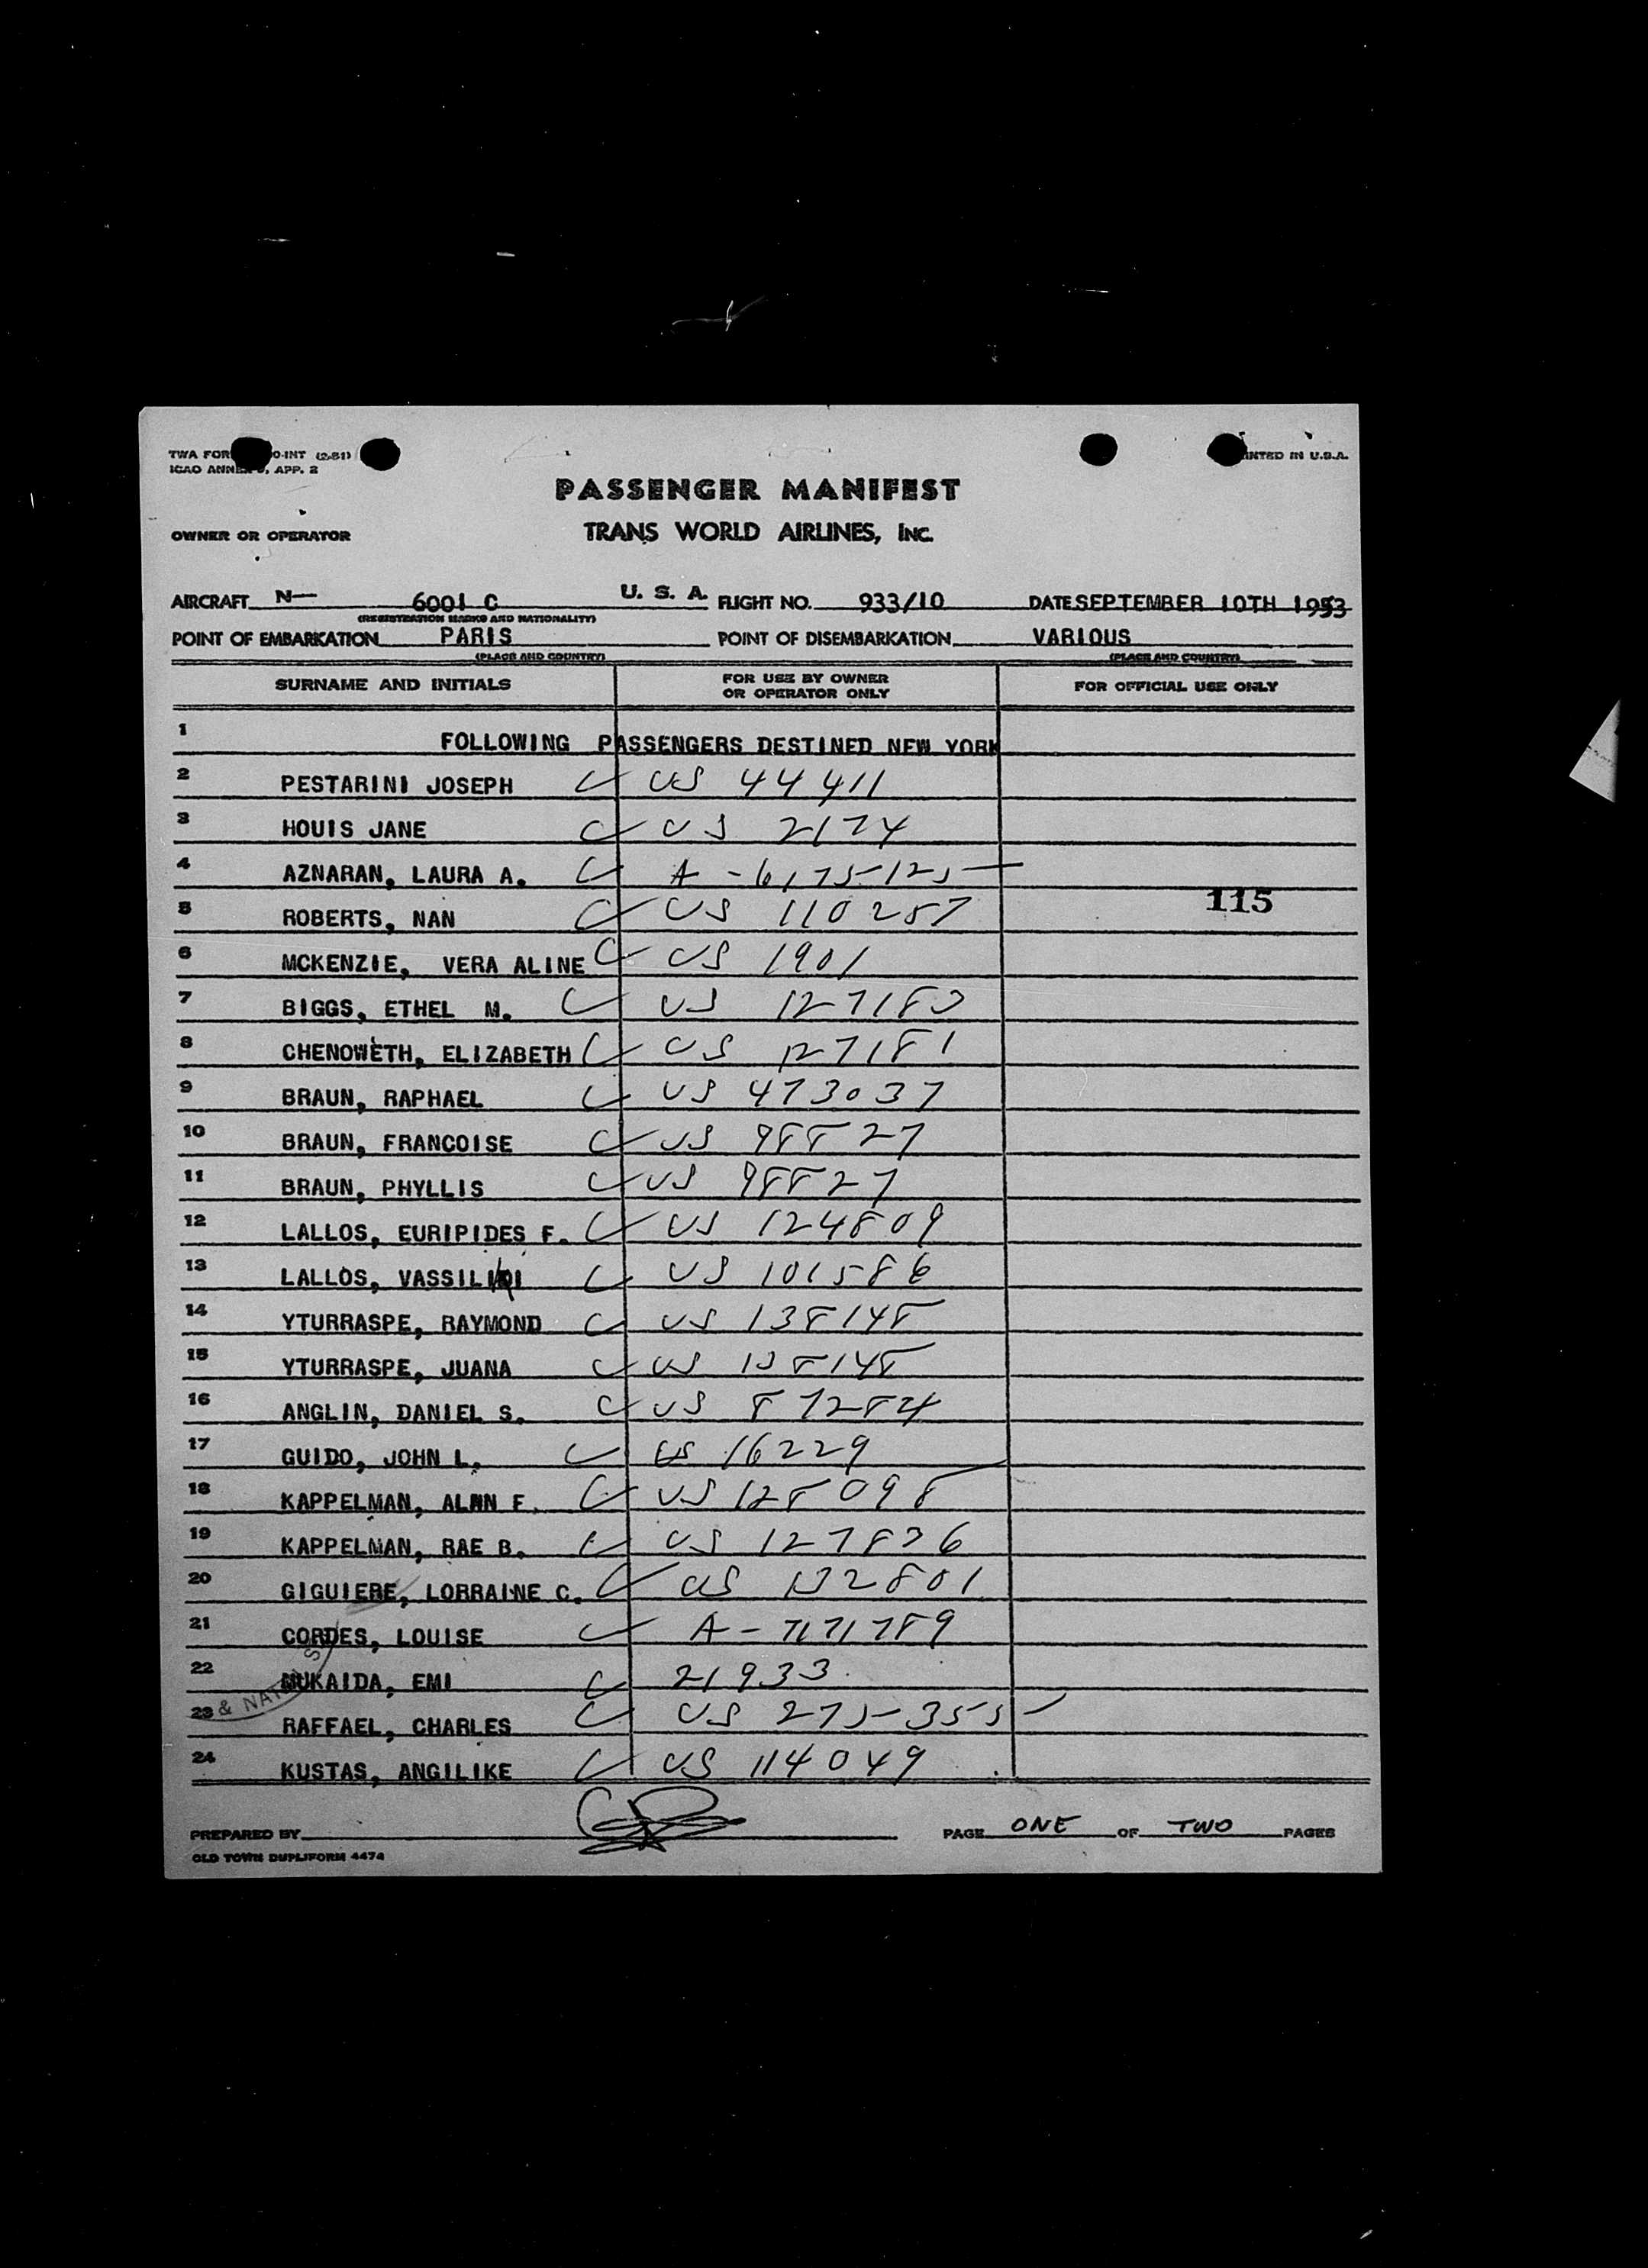 TWA FOR O-INT (2-51)
ICAO ANNEX 9, APP. 2
PRINTED IN U.S.A.
PASSENGER MANIFEST
OWNER OR OPERATOR TRANS WORLD AIRLINES, INC.
AIRCRAFT N- 6001 C U. S. A. FLIGHT NO. 933/10 DATE SEPTEMBER 10TH 1953
(REGISTRATION MARKS AND NATIONALITY)
POINT OF EMBARKATION PARIS POINT OF DISEMBARKATION VARIOUS
(PLACE AND COUNTRY) (PLACE AND COUNTRY)
SURNAME AND INITIALS FOR USE BY OWNER OR OPERATOR ONLY FOR OFFICIAL USE ONLY
1 FOLLOWING PASSENGERS DESTINED NEW YORK
2 PESTARINI JOSEPH US 44411
3 HOUIS JANE US 2174
4 AZNARAN, LAURA A. A-6175-125
115
5 ROBERTS, NAN US 110257
6 MCKENZIE, VERA ALINE US 1901
7 BIGGS, ETHEL M. US 127183
8 CHENOWETH, ELIZABETH US 127181
9 BRAUN, RAPHAEL US 473037
10 BRAUN, FRANCOISE US 98827
11 BRAUN, PHYLLIS US 98827
12 LALLOS, EURIPIDES F. US 124809
13 LALLOS, US 101586
14 YTURRASPE, RAYMOND US 138148
15 YTURRASPE, JUANA US 138148
16 ANGLIN, DANIEL S. US 87284
17 GUIDO, JOHN L. US 16229
18 KAPPELMAN, F. US 128098
19 KAPPELMAN, RAE B. US 127836
20 GIGUIERE, LORRAINE C. US 132801
21 CORDES, LOUISE A-7171789
22 MUKAIDA, EMI 21933
& NAT S
23 RAFFAEL, CHARLES US 275-355
24 KUSTAS, ANGILIKE US 114049
PREPARED BY PAGE ONE OF TWO PAGES
OLD TOWN DUPLIFORM 4474